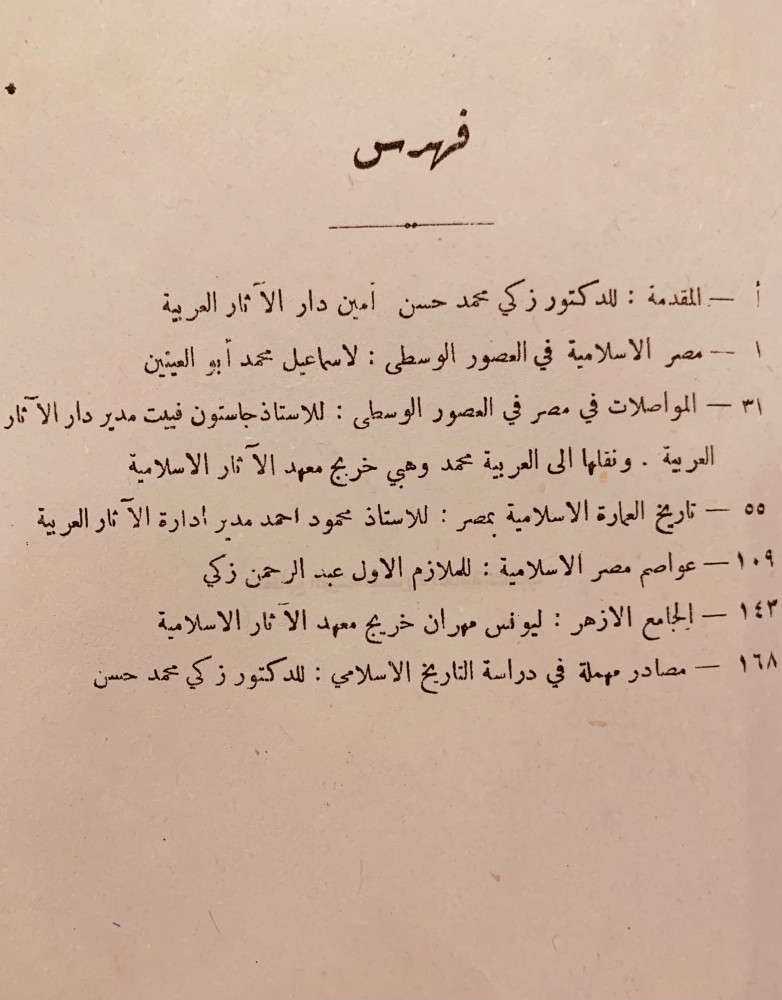 فهرس
أ — المقدمة : للدكتور زكي محمد حسن أمين دار الآثار العربية
١ — مصر الاسلامية في العصور الوسطى : لاسماعيل محمد أبو العينين
٣١ — المواصلات في مصر في العصور الوسطى : للاستاذ جاستون فييت مدير دار الآثار
العربية . ونقلها الى العربية محمد وهبي خريج معهد الآثار الاسلامية
٥٥ — تاريخ العمارة الاسلامية بمصر : للاستاذ محمود احمد مدير ادارة الآثار العربية
١٠٩ — عواصم مصر الاسلامية : للملازم الاول عبد الرحمن زكي
١٤٣ — الجامع الازهر : ليونس مهران خريج معهد الآثار الاسلامية
١٦٨ — مصادر مهملة في دراسة التاريخ الاسلامي : للدكتور زكي محمد حسن